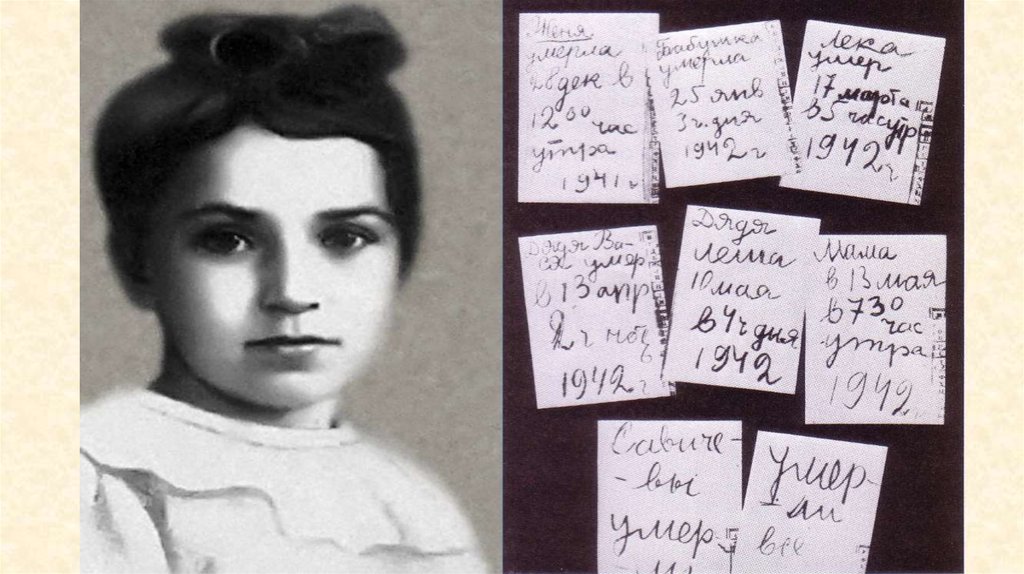 Женя
умерла
28 дек в
12 00 час
утра
1941 г
Бабушка
умерла
25 янв
3 ч. дня
1942 г
Лека
умер
17 марта
в 5 час утр
1942 г
Дядя Ва-
ся умер
в 13 апр
2 ч ночь
1942 г
Дядя
Леша
10 мая
в 4 ч дня
1942
Мама
в 13 мая
в 7 30
час
утра
1942
Савиче-
-вы
умер-
ли
Умер-
ли
все